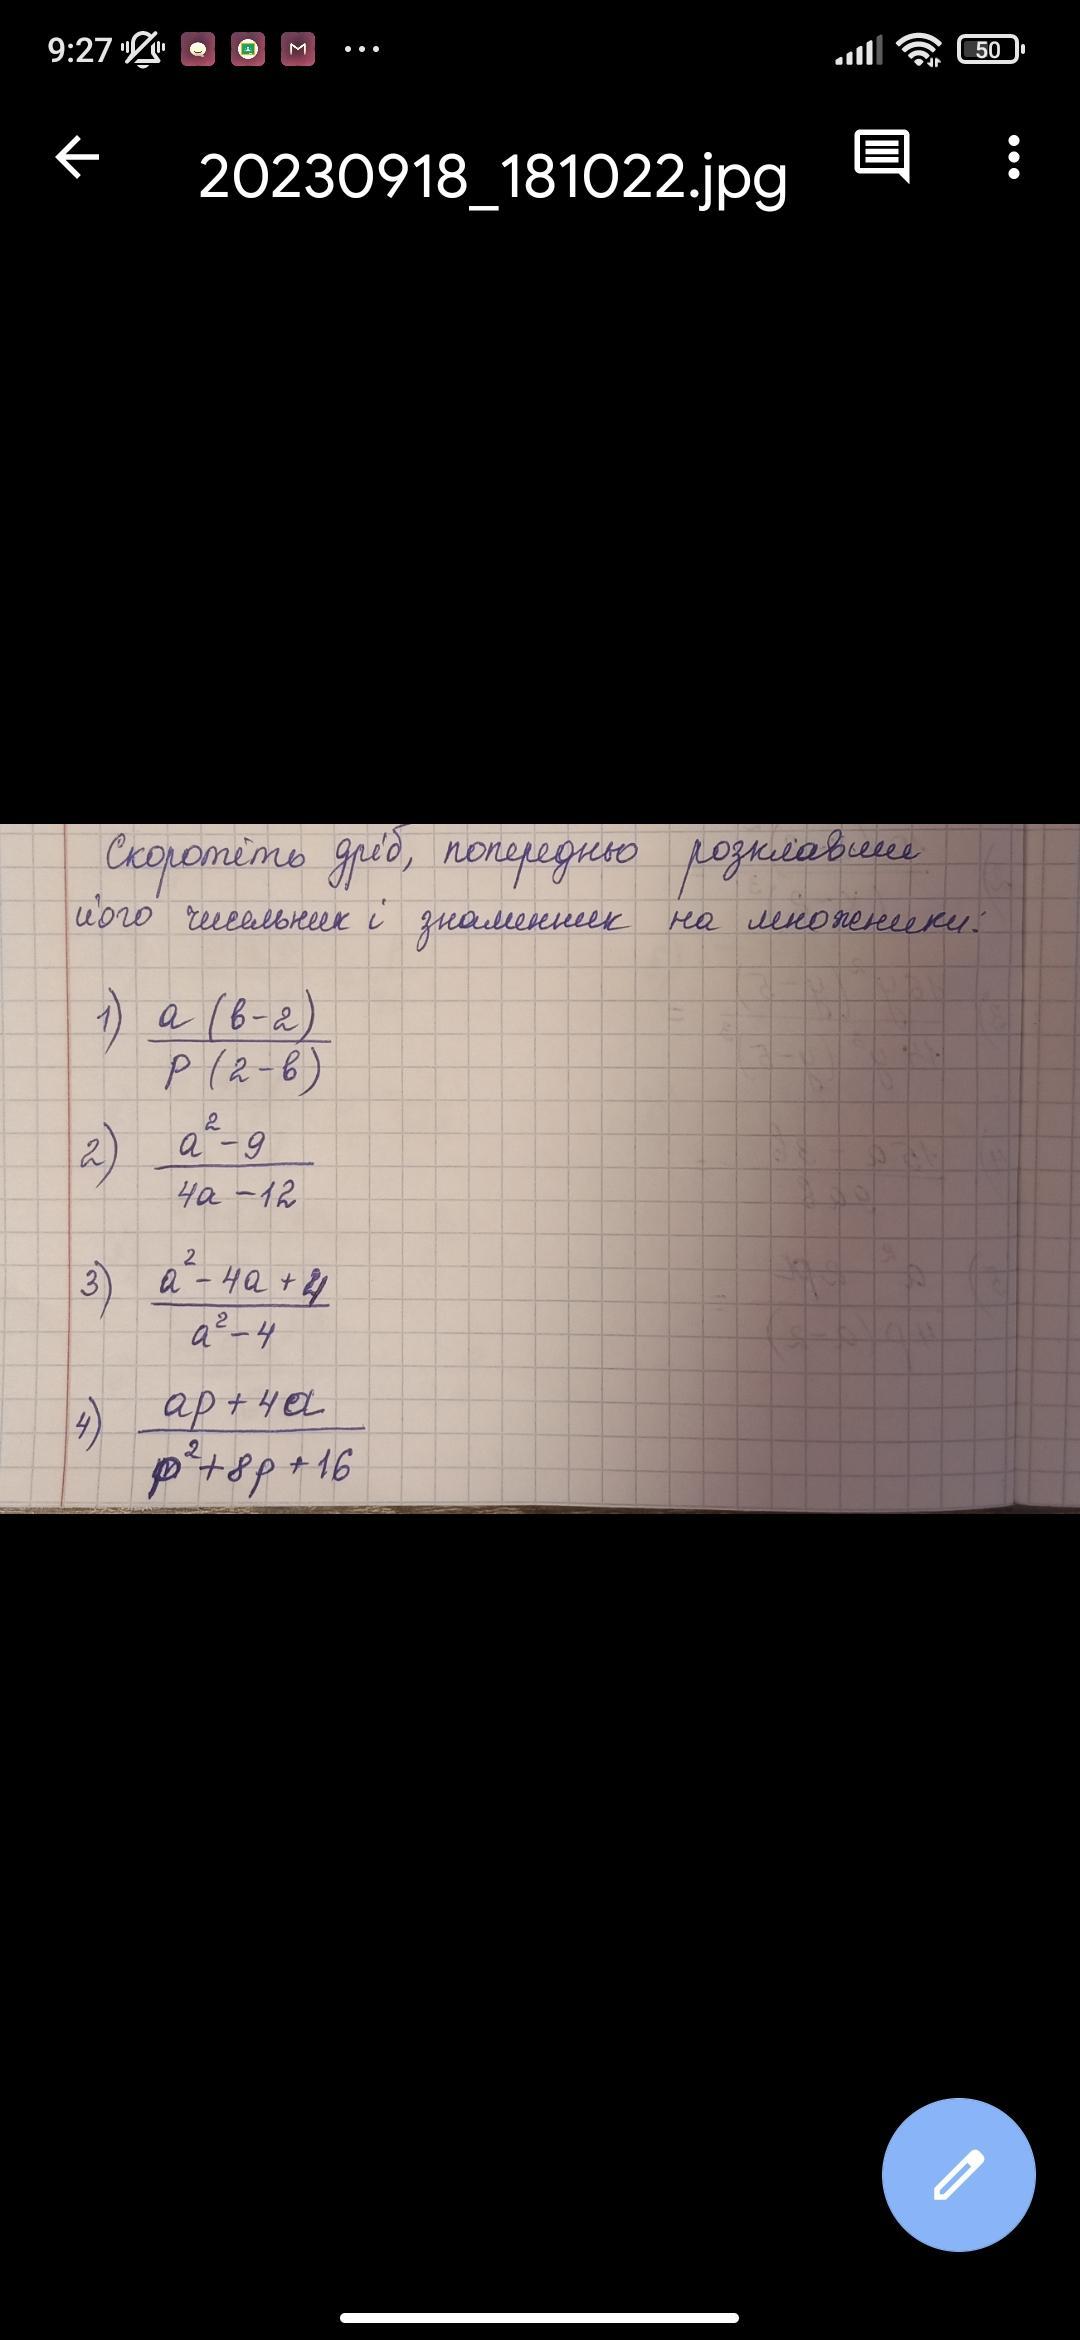 9:27 50
20230918_181022.jpg
Скоротіть дріб, попередньо розклавши
його чисельник і знаменник на множники:
1) a (b-2)
p (2-b)
2) a²-9
4a-12
3) a²-4a+4
a²-4
4) ap+4a
p²+8p+16